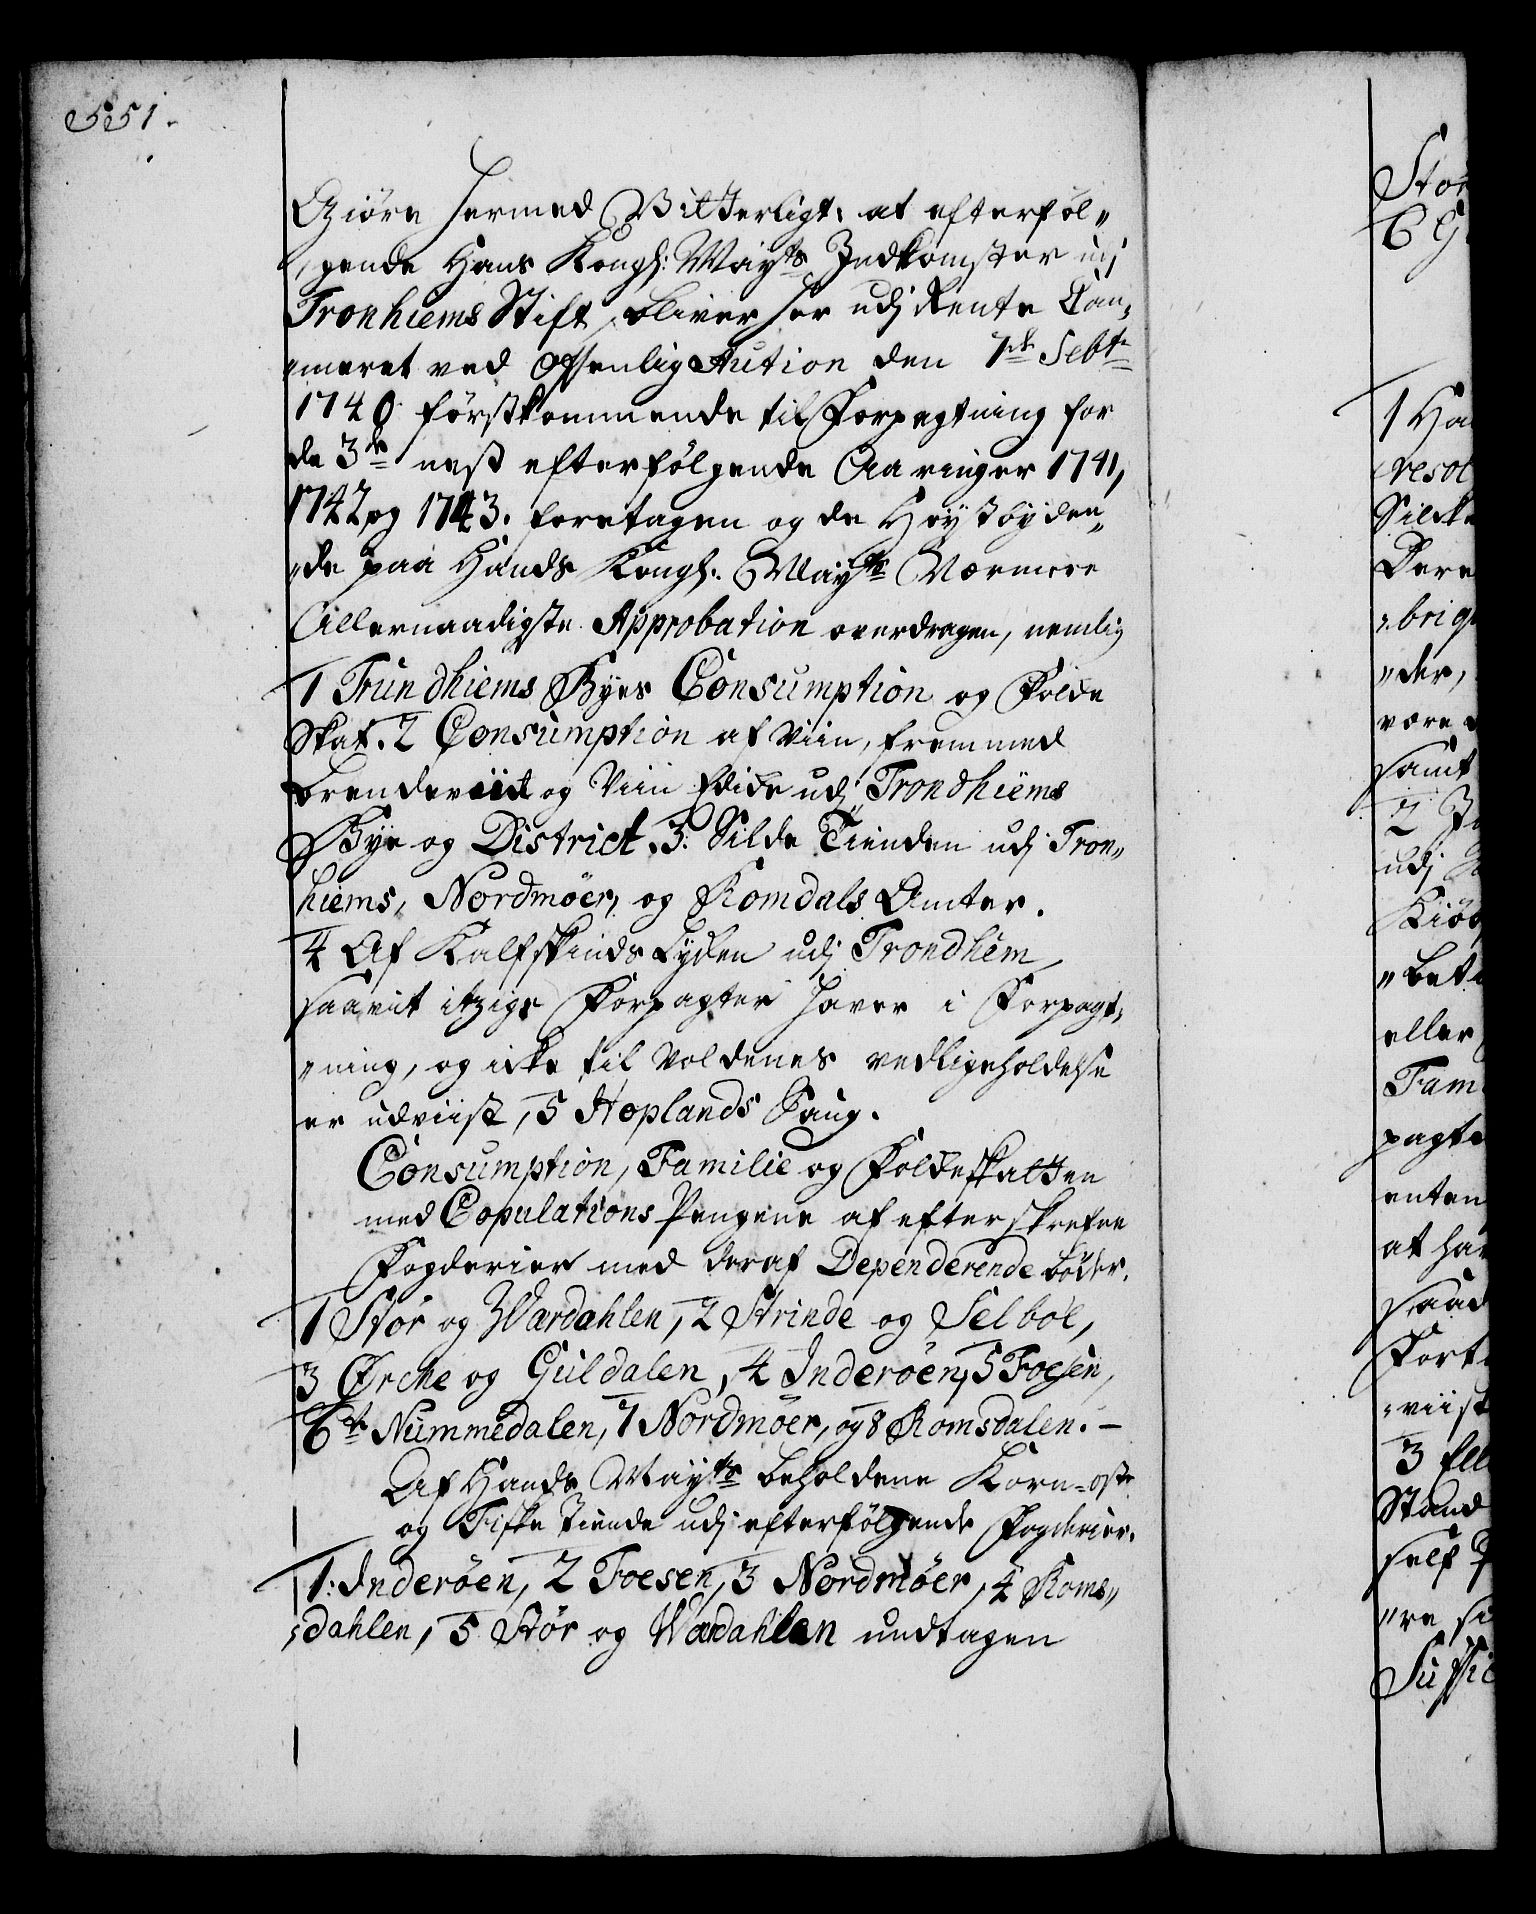 551.
Giöre hermed Vitterligt, at efterføl„
„gende Hans Kongl: Mayts Indkomster udj
Tronhiems Stift, bliver her udj Rente Cam„
„meret ved Offenlig Aution den 7de Sebtr
1740 førstkommende til Forpagtning for
de 3de nest efterfølgende Aaringer 1741,
1742, og 1743. foretagen og de Høystbyden„
„de paa Hands Kongl: Mayts Nærmere
Allernaadigste Approbation overdragen, nemlig
1 Trundhiems Byes Consumption og Folde
Skat. 2 Consumption af Viin, fremmed
brendeviit og Viin Edike udj Trondhiems
Bye og District. 3: Silde Tienden udj Tron„
hiems, Nordmöer, og Romdals Amter.
4 Af Kalfskinds Lyden udj Trondhem,
saavit itzige Forpagter haver i Forpagt„
„ning, og icke til Voldenes vedligeholdelse
er udviist, 5 Hoplands Saug.
Consumption, Familie og Foldeskatten
med Copulations Pengene af efterskrefne
Fogderier med deraf Dependerende bøder.
1 Stør og Wardahlen, 2 Strinde og Selboe,
3 Örcke og Guldalen, 4 Inderöen, 5 Foesen,
6te Nummedalen, 7 Nordmöer, og 8 Romsdalen. –
Af Hands Mayts beholdene Korn- oste
og Fiske Tiende udj efterfølgende Fogderier.
1: Inderöen, 2 Foesen, 3 Nordmöer, 4 Roms„
„dahlen, 5 Stør og Wardahlen undtagen
Stör
1 Ha
resol
Silcke
Dere
„brigu
„der,
være
samt
2
udj
Kiöb
„bet
eller
Fami
pagte
enten
at hav
saad
Fort
„viist
3 Ell
Stand
self
„re
Suffic